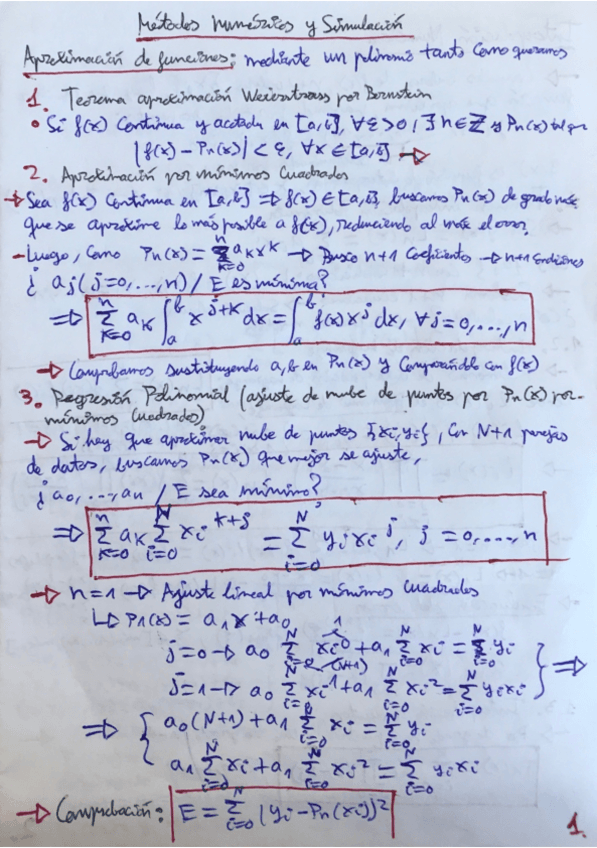 Métodos Numéricos y Simulación
Aproximación de funciones: mediante un polinomio tanto como queramos
1. Teorema aproximación Weierstrass por Bernstein
• Si f(x) continua y acotada en [a,b], ∀ε>0, ∃ n∈ℤ y Pn(x) tal que
|f(x) - Pn(x)| < ε, ∀x ∈ [a,b] →
2. Aproximación por mínimos cuadrados
→ Sea f(x) continua en [a,b] ⇒ f(x) ∈ [a,b], buscamos Pn(x) de grado máx
que se aproxime lo más posible a f(x), reduciendo al máx el error.
- Luego, como Pn(x) = Σ_{k=0}^{n} a_k x^k → Busco n+1 coeficientes → n+1 condiciones
¿ aj (j=0,...,n) / E es mínima?
⇒ Σ_{k=0}^{n} a_k ∫_a^b x^{j+k} dx = ∫_a^b f(x) x^j dx, ∀j=0,...,n
→ Comprobamos sustituyendo a,b en Pn(x) y comparándolo con f(x)
3. Regresión Polinomial (ajuste de nube de puntos por Pn(x) por
mínimos cuadrados)
→ Si hay que aproximar nube de puntos {xi,yi}, con N+1 parejas
de datos, buscamos Pn(x) que mejor se ajuste,
¿ a0,...,an / E sea mínimo?
⇒ Σ_{k=0}^{n} a_k Σ_{i=0}^{N} xi^{k+j} = Σ_{i=0}^{N} yi xi^j, j=0,...,n
→ n=1 → Ajuste lineal por mínimos cuadrados
↳ P1(x) = a1x + a0
j=0 → a0 Σ_{i=0}^{N} xi^0 + a1 Σ_{i=0}^{N} xi = Σ_{i=0}^{N} yi
1
(N+1)
j=1 → a0 Σ_{i=0}^{N} xi^1 + a1 Σ_{i=0}^{N} xi^2 = Σ_{i=0}^{N} yi xi } ⇒
⇒ { a0(N+1) + a1 Σ_{i=0}^{N} xi = Σ_{i=0}^{N} yi
a1 Σ_{i=0}^{N} xi + a1 Σ_{i=0}^{N} xi^2 = Σ_{i=0}^{N} yi xi
→ Comprobación: E = Σ_{i=0}^{N} (yi - Pn(xi))^2
1.